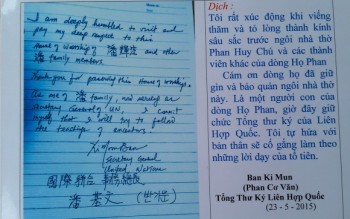 I am deeply humbled to visit and
pay my deep respect to this
House of Worship of 潘輝注 and other
潘 family members.
Thank you for preserving this House of worship.
As one of 潘 family, now serving as
Secretary General of UN, I commit
myself that I will try to follow
the teachings of ancestors!
Ki Moon Ban
Secretary General
United Nations
國際聯合 事務總長
潘基文
Dịch :
Tôi rất xúc động khi viếng
thăm và tỏ lòng thành kính
sâu sắc trước ngôi nhà thờ
Phan Huy Chú và các thành
viên khác của dòng họ Phan
Cám ơn dòng họ đã giữ
gìn và bảo quản ngôi nhà thờ
này. Là một người con của
dòng họ Phan, giờ đây giữ
chức Tổng thư ký của Liên
Hợp Quốc. Tôi tự hứa với
bản thân sẽ cố gắng làm theo
những lời dạy của tổ tiên.
Ban Ki Mun
(Phan Cơ Văn)
Tổng Thư Ký Liên Hợp Quốc
(23 - 5 - 2015)